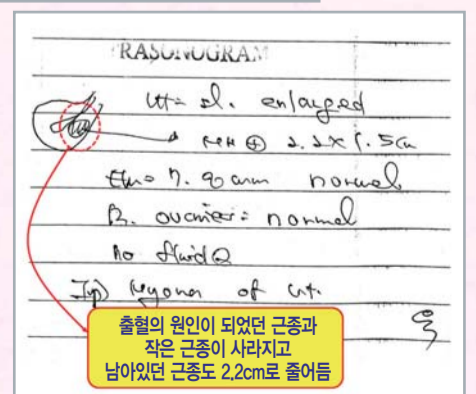 RASONOGRAM
Ut = sl. enlarged
⊕ 2.2 x 1.5cm
normal
B. ovaries = normal
no fluid
Ip) myoma of ut.
출혈의 원인이 되었던 근종과
작은 근종이 사라지고
남아있던 근종도 2.2cm로 줄어듬